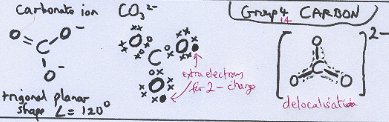 Carbonate ion CO₃²⁻
Group 4 CARBON
14
O O⁻
C
O⁻
O O
C
O
extra electrons
for 2- charge
trigonal planar
shape ∠ = 120°
O
C
O O
2-
delocalisation